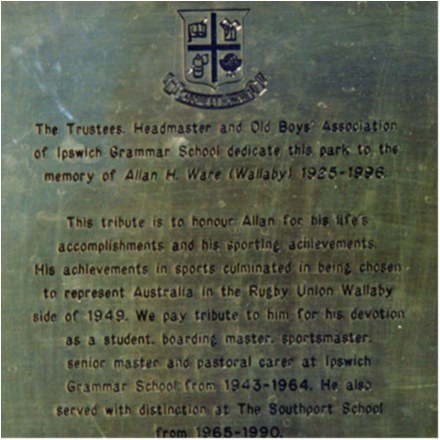 The Trustees, Headmaster and Old Boys' Association
of Ipswich Grammar School dedicate this park to the
memory of Allan H. Ware (Wallaby) 1925-1996.
This tribute is to honour Allan for his life's
accomplishments and his sporting achievements.
His achievements in sports culminated in being chosen
to represent Australia in the Rugby Union Wallaby
side of 1949. We pay tribute to him for his devotion
as a student, boarding master, sportsmaster,
senior master and pastoral carer at Ipswich
Grammar School from 1943-1964. He also
served with distinction at The Southport School
from 1965-1990.